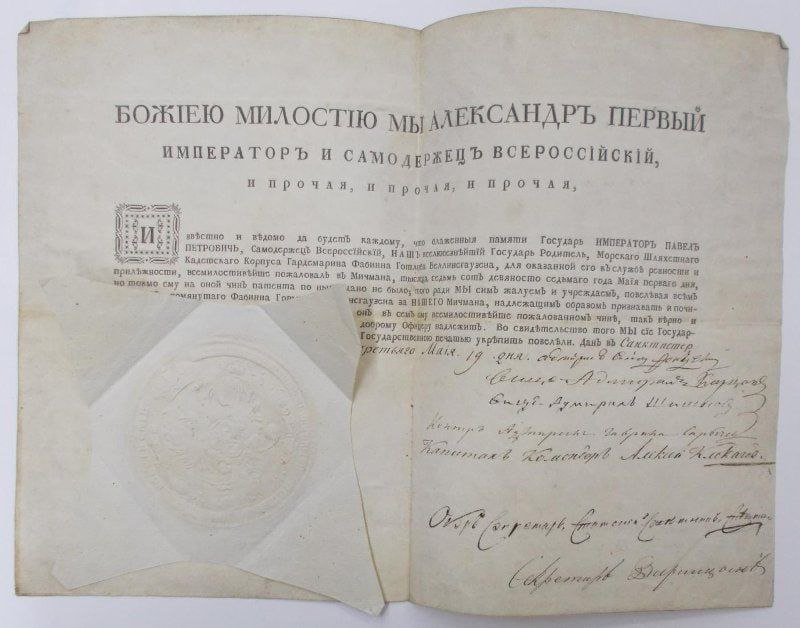 БОЖІЕЮ МИЛОСТІЮ МЫ АЛЕКСАНДРЪ ПЕРВЫЙ
ИМПЕРАТОРЪ И САМОДЕРЖЕЦЪ ВСЕРОССІЙСКІЙ,
И ПРОЧАЯ, И ПРОЧАЯ, И ПРОЧАЯ,
Извѣстно и вѣдомо да будетъ каждому, что блаженныя памяти Государь ИМПЕРАТОРЪ ПАВЕЛЪ
ПЕТРОВИЧЬ, Самодержецъ Всероссійскій, НАШЪ вселюбезнѣйшій Государь Родитель, Морскаго Шляхетнаго
Кадетскаго Корпуса Гардемарина Фабинна Готлиба Беллинсгаузена, для оказанной его въ службѣ ревности и
прилѣжности, всемилостивѣйше пожаловалъ въ Мичмана, тысяща седмь сотъ девяносто седьмаго года Маія перваго дня,
но токмо ему на оной чинъ патента по нынѣ дано не было; того ради МЫ симъ жалуемъ и учреждаемъ, повелѣвая всѣмъ
помянутаго Фабинна Готлиба Беллинсгаузена за НАШЕГО Мичмана, надлежащимъ образомъ признавать и почи-
онъ въ семъ ему всемилостивѣйше пожалованномъ чинѣ, такъ вѣрно и
доброму Офицеру надлежитъ. Во свидѣтельство того МЫ сіе Государ-
Государственною печатью укрѣпить повелѣли. Данъ въ Санктпетер
третьяго Маія 19 дня.
Вице-Адмиралъ Карцовъ
Вице-Адмиралъ Шишковъ
Контръ Адмиралъ Гаврила Сарычевъ
Капитанъ Командоръ Алексѣй
Оберъ Секретарь
Секретарь